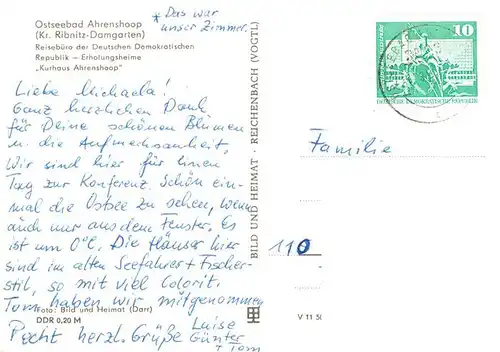 * Das war
unser Zimmer.
Ostseebad Ahrenshoop
(Kr. Ribnitz-Damgarten)
Reisebüro der Deutschen Demokratischen
Republik — Erholungsheime
„Kurhaus Ahrenshoop“
Liebe Michaela!
Ganz herzlichen Dank
für Deine schönen Blumen
u. die Aufmerksamkeit.
Wir sind hier für einen
Tag zur Konferenz. Schön ein-
mal die Ostsee zu sehen, wenn
auch nur aus dem Fenster. Es
ist um 0°C. Die Häuser hier
sind im alten Seefahrer + Fischer-
stil, so mit viel Colorit.
Tom haben wir mitgenommen
Foto: Bild und Heimat (Darr)
DDR 0,20 M
herzl. Grüße Luise
Günter
+ Tom
BILD UND HEIMAT · REICHENBACH (VOGTL)
10
DEUTSCHE DEMOKRATISCHE REPUBLIK
Familie
110
V 11 50